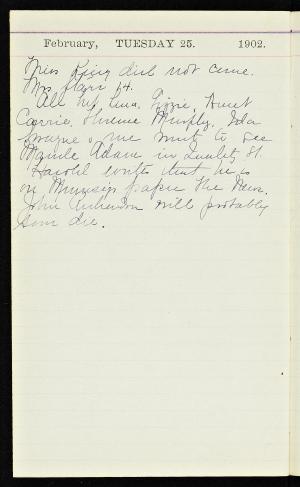 February, TUESDAY 25. 1902.
Miss did not come.
Mrs Starr 14.
All the Lizzie, Aunt
Carrie, Florence Murphy, Iola
& me went to see
Maude Adams in Quality St.
Harold writes that he is
on Munsey's paper the News.
John will probably
soon die.